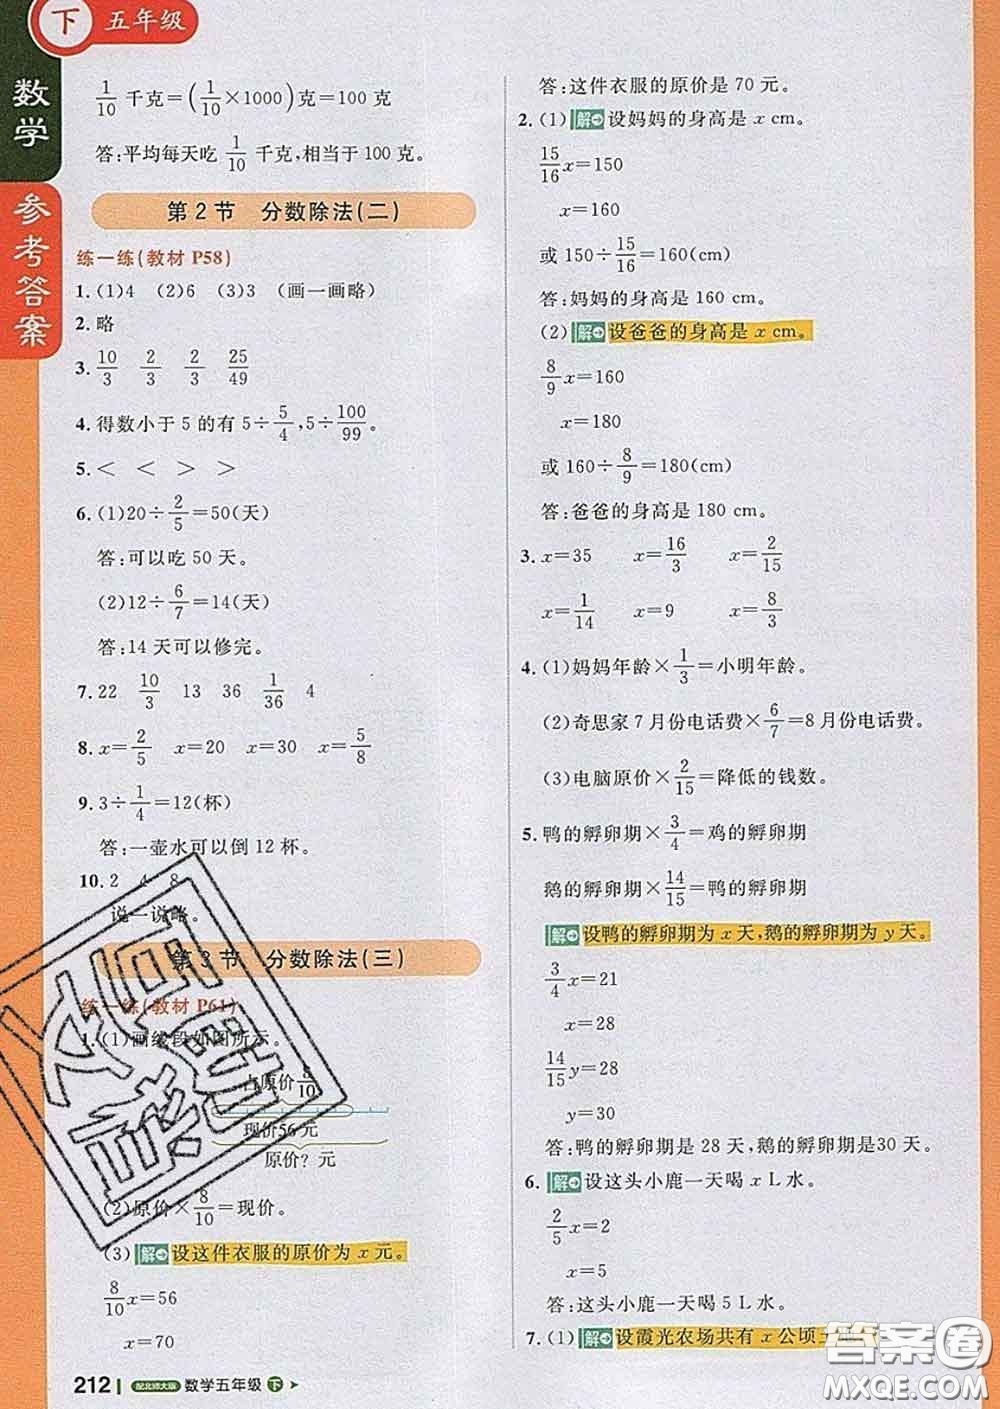 下 五年级
数学
参考答案
1/10 千克=(1/10×1000)克=100 克
答:平均每天吃 1/10 千克,相当于 100 克。
第 2 节 分数除法(二)
练一练(教材 P58)
1.(1)4 (2)6 (3)3 (画一画略)
2.略
3. 10/3 2/3 2/3 25/49
4.得数小于 5 的有 5÷5/4,5÷100/99。
5.< < > >
6.(1)20÷2/5=50(天)
答:可以吃 50 天。
(2)12÷6/7=14(天)
答:14 天可以修完。
7.22 10/3 13 36 1/36 4
8.x=2/5 x=20 x=30 x=5/8
9.3÷1/4=12(杯)
答:一壶水可以倒 12 杯。
10.2 4 8
说一说略。
第 3 节 分数除法(三)
练一练(教材 P61)
1.(1)画线段如图所示。
占原价8/10
现价56元
原价? 元
(2)原价×8/10=现价。
(3)解 设这件衣服的原价为 x 元。
8/10x=56
x=70
答:这件衣服的原价是 70 元。
2.(1)解 设妈妈的身高是 x cm。
15/16x=150
x=160
或 150÷15/16=160(cm)
答:妈妈的身高是 160 cm。
(2)解 设爸爸的身高是 x cm。
8/9x=160
x=180
或 160÷8/9=180(cm)
答:爸爸的身高是 180 cm。
3.x=35 x=16/3 x=2/15
x=1/14 x=9 x=8/3
4.(1)妈妈年龄×1/3=小明年龄。
(2)奇思家 7 月份电话费×6/7=8 月份电话费。
(3)电脑原价×2/15=降低的钱数。
5.鸭的孵卵期×3/4=鸡的孵卵期
鹅的孵卵期×14/15=鸭的孵卵期
解 设鸭的孵卵期为 x 天,鹅的孵卵期为 y 天。
3/4x=21
x=28
14/15y=28
y=30
答:鸭的孵卵期是 28 天,鹅的孵卵期是30 天。
6.解 设这头小鹿一天喝 x L 水。
2/5x=2
x=5
答:这头小鹿一天喝 5 L 水。
7.(1)解 设霞光农场共有 x 公顷土
212 配北师大版 数学五年级 下
答案圈
MXQE.COM